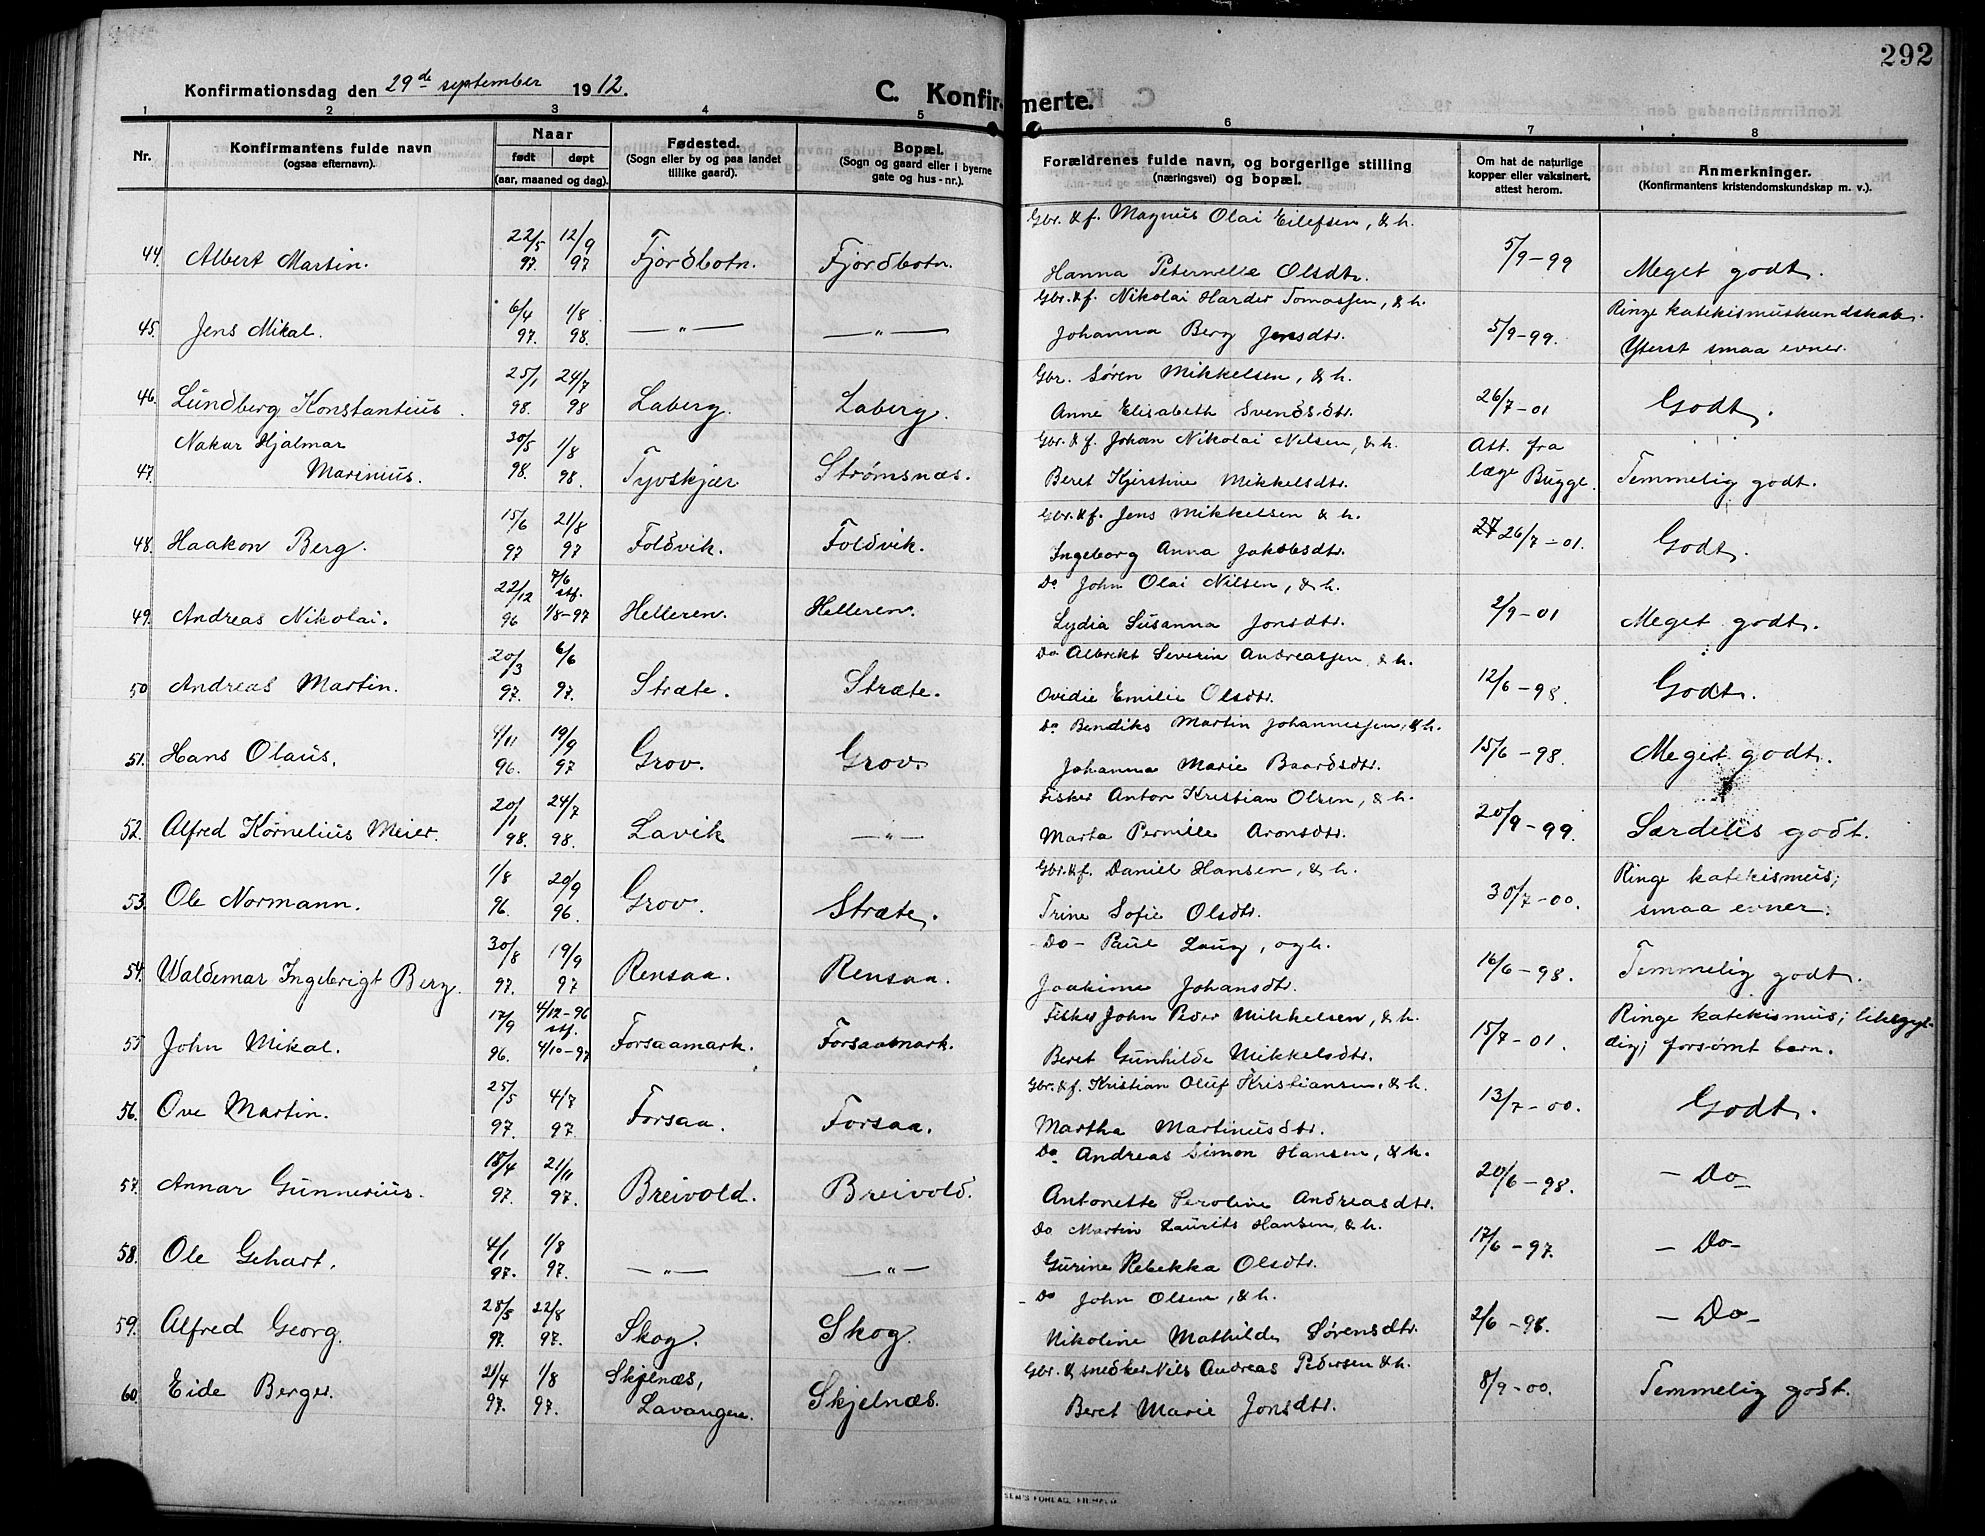 292
Konfirmationsdag den 29de september 1912.
C. Konfirmerte.
1 2 3 4 5 6 7 8
Nr.
Konfirmantens fulde navn
(ogsaa efternavn).
Naar
født døpt
(aar, maaned og dag).
Fødested.
(Sogn eller by og paa landet
tillike gaard).
Bopæl.
(Sogn og gaard eller i byerne
gate og hus-nr.).
Forældrenes fulde navn, og borgerlige stilling
(næringsvei) og bopæl.
Om hat de naturlige
kopper eller vaksinert,
attest herom.
Anmerkninger.
(Konfirmantens kristendomskundskap m. v.).
Gbr. & f. Magnus Olai Eilefsen, & h.
44. Albert Martin. 22/5 97. 12/9 97 Fjordbotn. Fjordbotn. Hanna Peternelle Olsdtr. 5/9-99 Meget godt.
Gbr. & f. Nikolai Harder Tomassen, & h. Ringe katekismuskundskab.
45. Jens Mikal. 6/4 97. 1/8 98. —"— —"— Johanna Berg Jensdtr. 5/9-99. Yterst smaa evner.
Gbr. Søren Mikkelsen, & h.
46. Lundberg Konstantius. 25/1 98. 24/7 98 Laberg. Laberg. Anne Elisabeth Svendsdtr. 26/7-01 Godt.
Nakur Hjalmar Gbr. & f. Johan Nikolai Nilsen, & h. Att. fra
47. Marinius. 30/5 98. 1/8 98. Tyvskjær Strømsnæs. Beret Kjerstine Mikkelsdtr. læge Bugge. Temmelig godt.
Gbr. & f. Jens Mikkelsen & h.
48. Haakon Berg. 15/6 97 21/8 97 Foldvik. Foldvik. Ingeborg Anna Jakobsdtr. 26/7-01. Godt.
Do John Olai Nilsen, & h.
49. Andreas Nikolai. 22/12 96 7/6 stf. 1/8-97 Helleren. Helleren. Lydia Susanna Jonsdtr. 2/9-01 Meget godt.
Do Albrekt Severin Andreassen & h.
50 Andreas Martin. 20/3 97. 6/6 97. Stræte. Stræte. Ovidie Emilie Olsdtr. 12/6-98. Godt.
Do Bendiks Martin Johannessen, & h.
51. Hans Olaus. 4/11 96. 19/9 97 Grov. Grov. Johanna Marie Baardsdtr. 15/6-98. Meget godt.
Fisker Anton Kristian Olsen, & h.
52. Alfred Kornelius Meier. 20/1 98. 24/7 98. Lavik —"— Marta Pernille Aronsdtr. 20/9-99. Særdeles godt.
Gbr. & f. Daniel Hansen, & h. Ringe katekismus;
53. Ole Normann. 1/8 96. 20/9 96. Grov. Stræte. Trine Sofie Olsdtr. 30/7-00. smaa evner.
- Do - Paul Laug, og h.
54. Waldemar Ingebrigt Berg. 30/8 97. 19/9 97 Rensaa. Rensaa. Joakime Johansdtr. 16/6-98. Temmelig godt.
Fisker John Peder Mikkelsen, & h. Ringe katekismus; likegyl-
55 John Mikal. 17/9 96. 4/12-96 stf. 4/10-97 Forsaamark. Forsaamark. Beret Gunhilde Mikkelsdtr. 15/7-01. dig; forsømt barn.
Gbr. & f. Kristian Oluf Kristiansen, & h.
56. Ove Martin. 25/5 97. 4/7 97. Forsaa. Forsaa. Martha Martinusdtr. 13/7-00. Godt.
Do Andreas Simon Hansen, & h.
57. Annar Gunnerius. 18/4 97. 21/11 97. Breivold. Breivold. Antonette Peroline Andreasdtr. 20/6-98. — Do —
Do Martin Laurits Hansen, & h.
58. Ole Gehart. 4/1 97. 1/8 97. —"— —"— Gurine Rebekka Olsdtr. 17/6-97. — Do —
- Do John Olsen, & h.
59. Alfred Georg. 28/5 97. 22/8 97. Skog. Skog. Nikoline Mathilde Sørensdtr. 2/6-98. — Do —
Gbr. & snedker Nils Andreas Pedersen & h.
60. Eide Berger. 21/4 97. 1/8 97. Skjelnæs, Lavangen. Skjelnæs. Beret Marie Jonsdtr. 8/9-00. Temmelig godt.